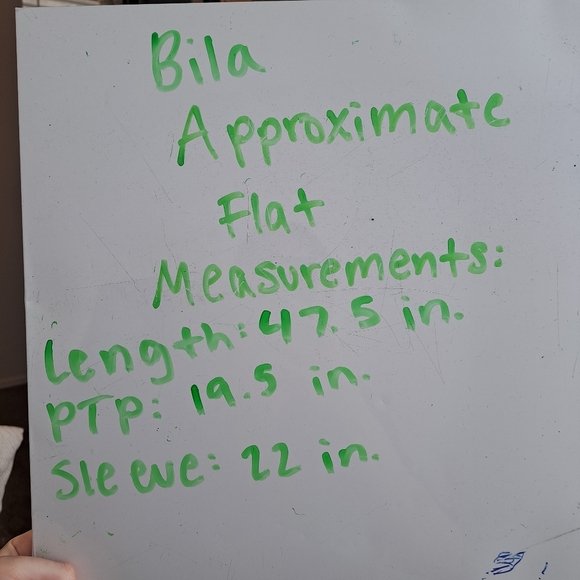 Bila
Approximate
Flat
Measurements:
Length: 47.5 in.
PTP: 19.5 in.
Sleeve: 22 in.